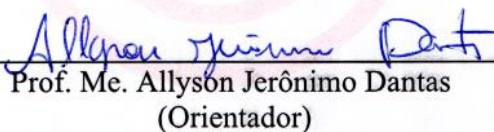 Allyson Jerônimo Dantas
Prof. Me. Allyson Jerônimo Dantas
(Orientador)